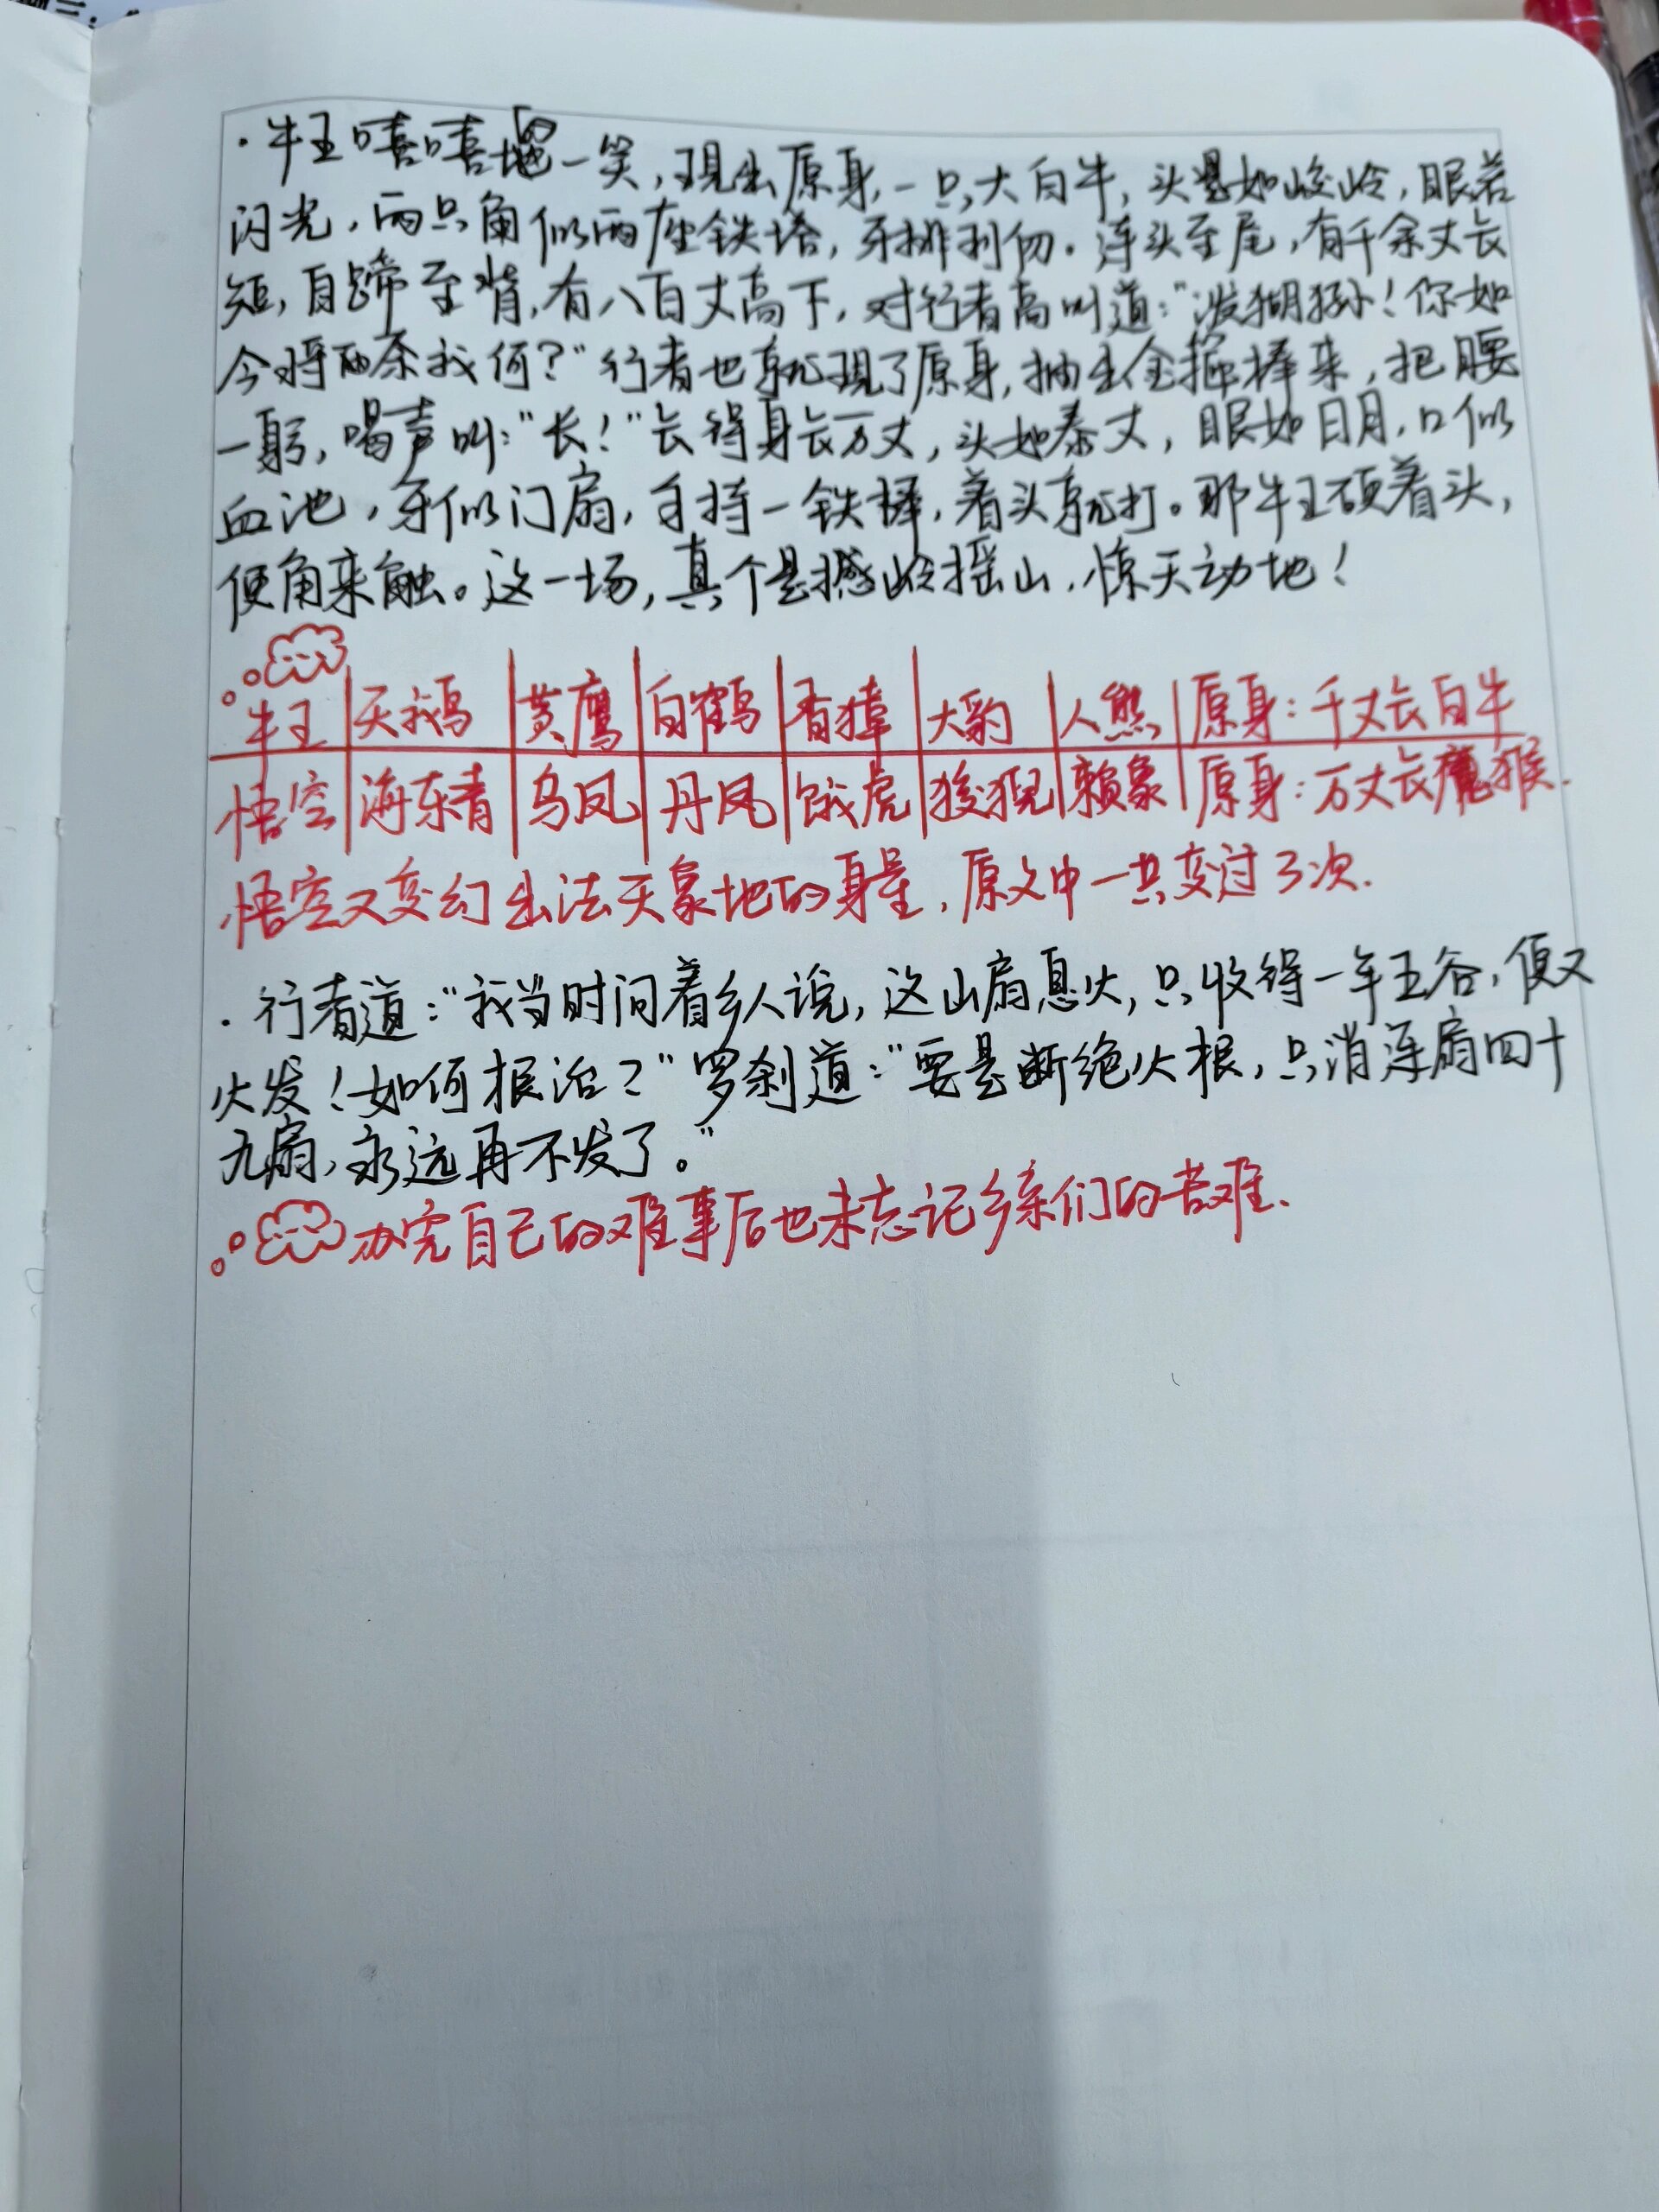 ·牛王嘻嘻地一笑，现出原身，一只大白牛，头是如峻岭，眼若
闪光，两只角似两座铁塔，牙排利刃。连头至尾，有千余丈长
短，自蹄至背，有八百丈高下，对行者高叫道："泼猢狲！你如
今将奈我何？"行者也就现了原身，抽出金箍棒来，把腰
一躬，喝声叫："长！"长得身长万丈，头如泰丈，眼如日月，口似
血池，牙似门扇，手持一铁棒，着头就打。那牛王硕着头，
便角来触。这一场，真个是撼岭摇山，惊天动地！
牛王 天鹅 黄鹰 白鹤 香獐 大豹 人熊 原身：千丈长白牛
悟空 海东青 乌凤 丹凤 饿虎 狻猊 赖象 原身：万丈长魔猴.
悟空又变幻出法天象地的身量，原文中一共变过3次.
·行者道："我当时问着乡人说，这山扇息火，只收得一年五谷，便又
火发！如何根治？"罗刹道："要是断绝火根，只消连扇四十
九扇，永远再不发了。"
办完自己的难事后也未忘记乡亲们的苦难.